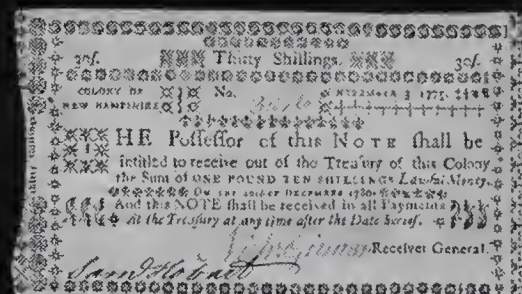 30ſ. Thirty Shillings. 30ſ.
COLONY OF No. NOVEMBER 3 1775.
NEW HAMPSHIRE
THE Poſſeſſor of this NOTE ſhall be
intitled to receive out of the Treaſury of this Colony
the Sum of ONE POUND TEN SHILLINGS Lawful Money,
DECEMBER 1780.
And this NOTE ſhall be received in all Payments
at the Treaſury at any time after the Date hereof.
Receiver General.